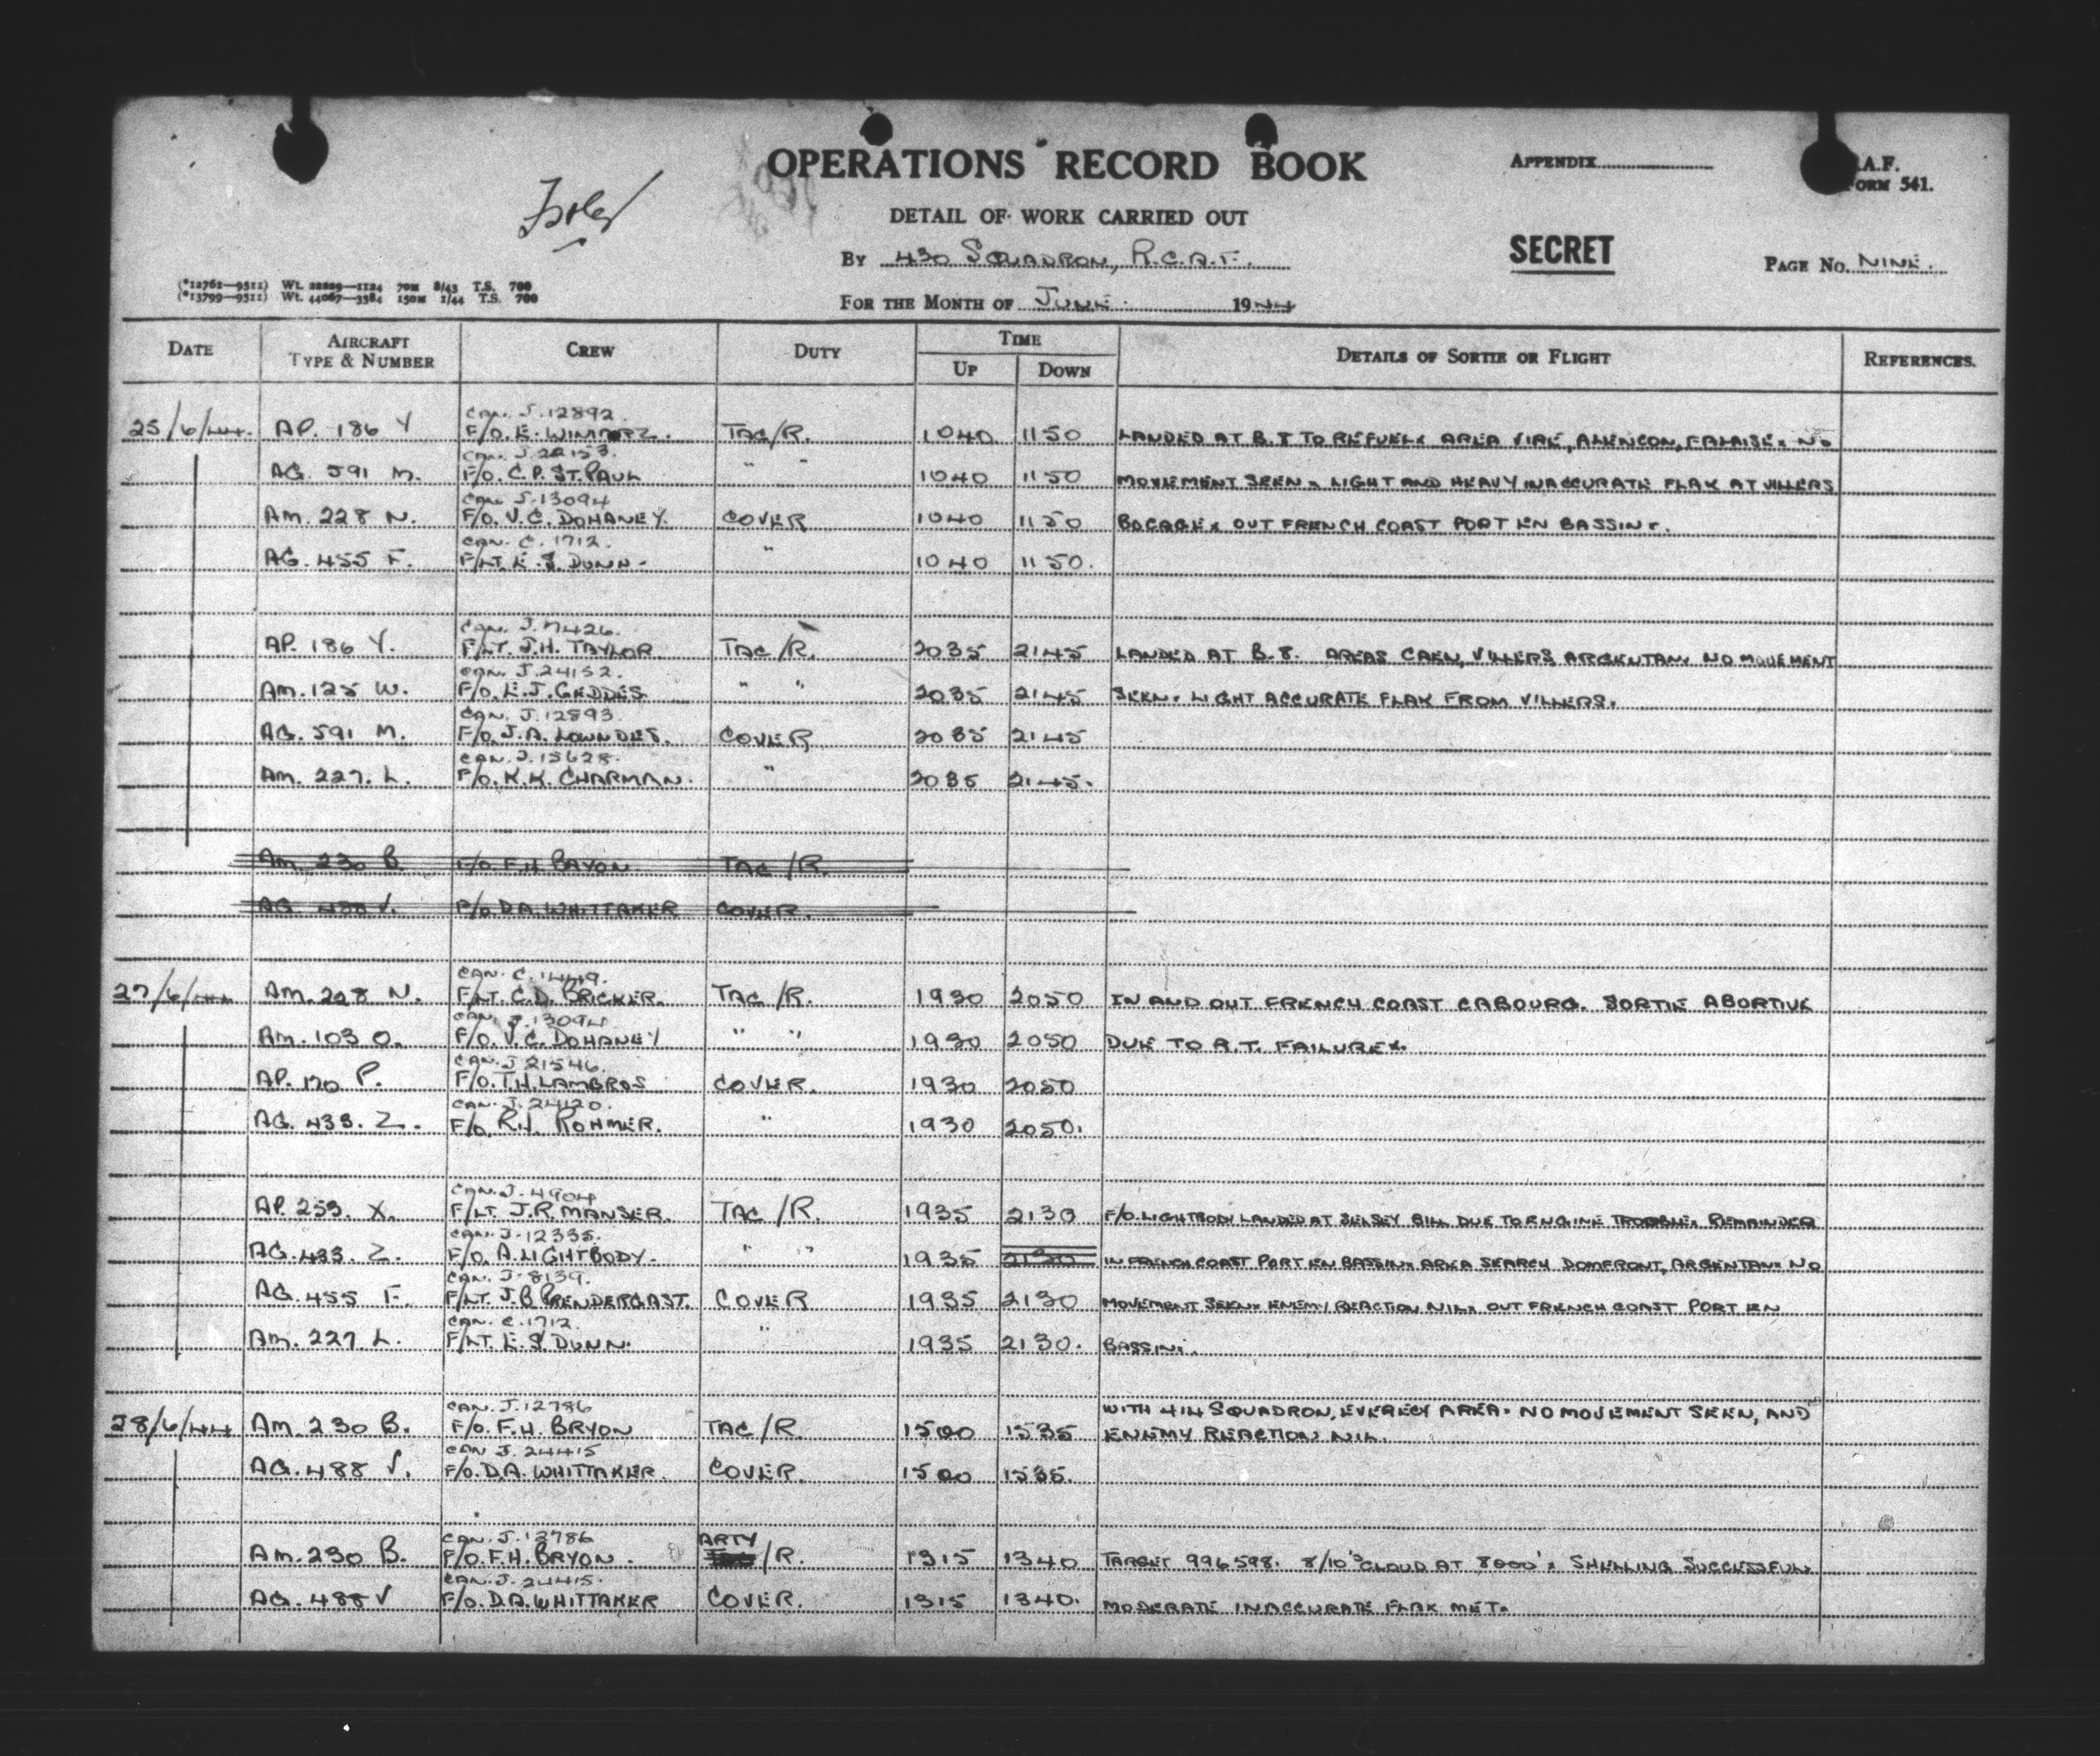 OPERATIONS RECORD BOOK
APPENDIX
.A.F.
FORM 541.
DETAIL OF WORK CARRIED OUT
BY 430 SQUADRON, R.C.A.F.
SECRET
PAGE NO. NINE.
(*12761—9511) Wt. 22829—1124 70M 8/43 T.S. 700
(*13799—9511) Wt. 44067—3384 150M 1/44 T.S. 700
FOR THE MONTH OF JUNE. 1944
DATE AIRCRAFT TYPE & NUMBER CREW DUTY TIME UP DOWN DETAILS OF SORTIE OR FLIGHT REFERENCES.
CAN. J.12892.
25/6/44. AP. 186 Y F/O. E. WINIARZ. TAC/R. 1040 1150 LANDED AT B. TO REFUEL. AREA VIRE, ALENCON, FALAISE. NO
CAN. J.22153.
AG. 591 M. F/O. C.P. ST. PAUL " " 1040 1150 MOVEMENT SEEN. LIGHT AND HEAVY INACCURATE FLAK AT VILLERS
CAN. J.13094
AM. 228 N. F/O. V.C. DOHANEY. COVER 1040 1150 BOCAGE. OUT FRENCH COAST PORT EN BASSIN.
CAN. C. 1712.
AG. 455 F. F/LT. E.S. DUNN. " 1040 1150.
CAN. J.7426.
AP. 186 Y. F/LT. J.H. TAYLOR. TAC/R. 2035 2145 LANDED AT B.8. AREAS CAEN, VILLERS ARGENTAN. NO MOVEMENT
CAN. J.24152.
AM. 125 W. F/O. E.J. GEDDES. " " 2035 2145 SEEN. LIGHT ACCURATE FLAK FROM VILLERS.
CAN. J.12893.
AG. 591 M. F/O. J.A. LOWNDES. COVER 2035 2145
CAN. J.15628.
AM. 227. L. F/O. K.K. CHARMAN. " 2035 2145.
AM. 230 B. F/O. F.H. BRYON TAC/R.
AG. 488 V. F/O. D.A. WHITTAKER COVER.
CAN. C. 1449.
27/6/44 AM. 228 N. F/LT. C.D. BRICKER. TAC/R. 1930 2050 IN AND OUT FRENCH COAST CABOURG. SORTIE ABORTIVE
CAN. J.13094
AM. 103 O. F/O. V.C. DOHANEY " " 1930 2050 DUE TO R.T. FAILURE.
CAN. J 21546.
AP. 170 P. F/O. T.H. LAMBROS COVER. 1930 2050
CAN. J. 24120.
AG. 433. Z. F/O. R.H. ROHMER. " 1930 2050.
CAN. J. 4904
AP. 253. X. F/LT. J.R. MANSER. TAC/R. 1935 2130 F/O. LIGHTBODY LANDED AT SELSEY BILL DUE TO ENGINE TROUBLE. REMAINDER
CAN. J. 12335.
AG. 433. Z. F/O. A. LIGHTBODY. " " 1935 2130 IN FRENCH COAST PORT EN BASSIN. AREA SEARCH DOMFRONT, ARGENTAN. NO
CAN. J. 8139.
AG. 455 F. F/LT. J.B PRENDERGAST. COVER 1935 2130 MOVEMENT SEEN. ENEMY REACTION NIL. OUT FRENCH COAST PORT EN
CAN. C. 1712.
AM. 227. L. F/LT. E.S DUNN. " 1935 2130. BASSIN.
CAN. J.12786 WITH 414 SQUADRON, EVERECY AREA. NO MOVEMENT SEEN, AND
28/6/44 AM. 230 B. F/O. F.H. BRYON TAC/R. 1500 1535 ENEMY REACTION NIL.
CAN J. 24415
AG. 488 V. F/O. D.A. WHITTAKER. COVER. 1500 1535.
CAN. J. 12786 ARTY
AM. 230 B. F/O. F.H. BRYON. /R. 1315 1340 TARGET 996598. 8/10'S CLOUD AT 8000'. SHELLING SUCCESSFUL
CAN. J. 24415.
AG. 488 V F/O. D.A. WHITTAKER COVER. 1315 1340. MODERATE INACCURATE FLAK MET.